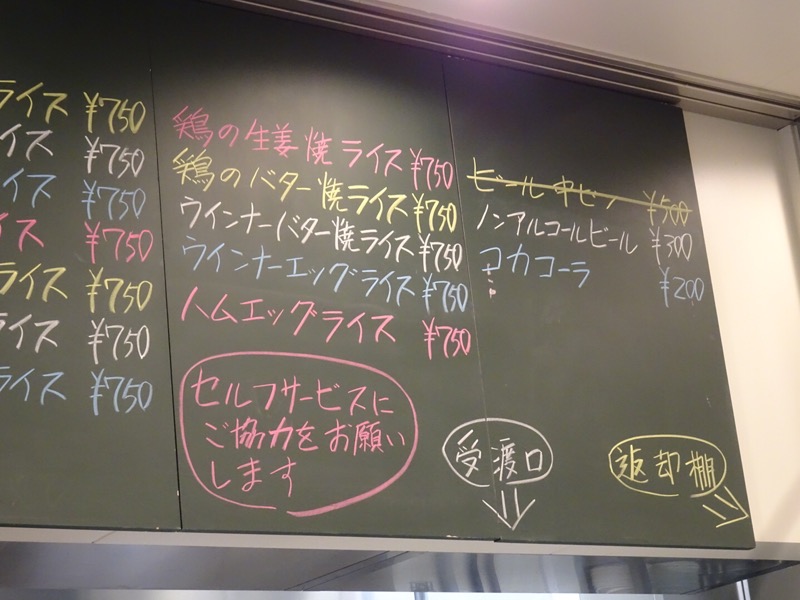 ライス ¥750
イス ¥750
イス ¥750
イス ¥750
ライス ¥750
ライス ¥750
ライス ¥750
鶏の生姜焼ライス ¥750
鶏のバター焼ライス ¥750
ウインナーバター焼ライス ¥750
ウインナーエッグライス ¥750
ハムエッグライス ¥750
セルフサービスに
ご協力をお願い
します
ビール 中ビン ¥500
ノンアルコールビール ¥300
コカコーラ ¥200
受渡口
返却棚